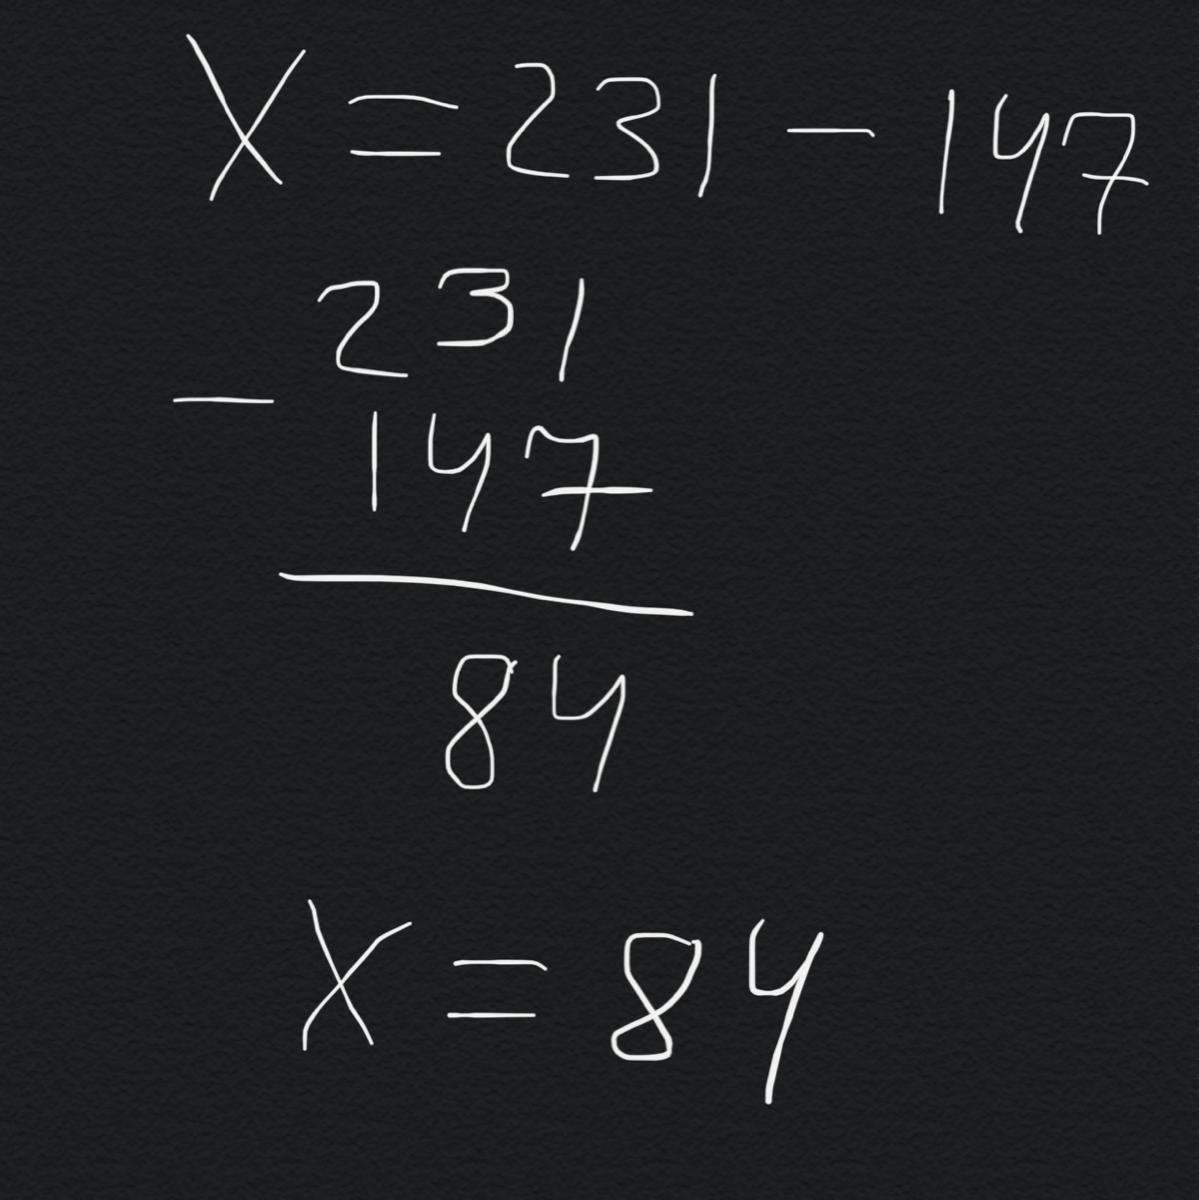 X = 231 - 147
231
-
147
84
X = 84